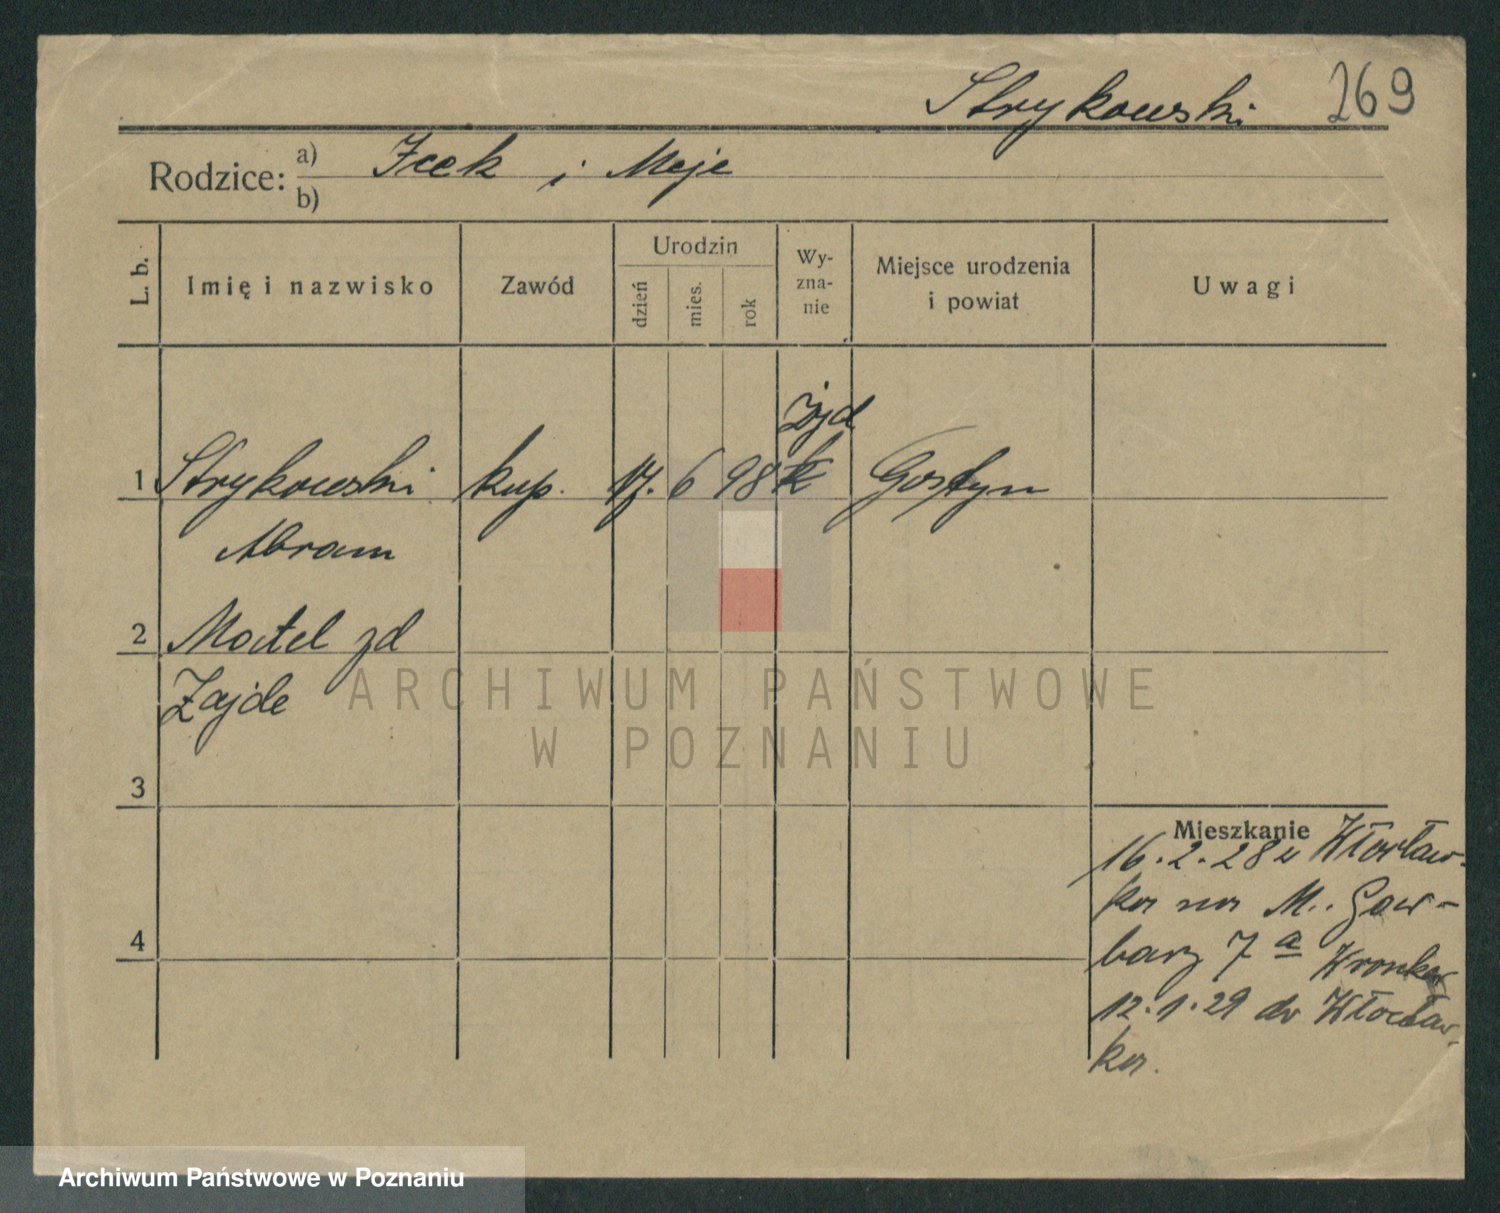 Strykowski 269
Rodzice: a) Icek i Meje
b)
L. b.
Imię i nazwisko
Zawód
Urodzin
dzień
mies.
rok
Wy-
zna-
nie
Miejsce urodzenia
i powiat
Uwagi
żyd
1 Strykowski kup. 17. 6 98 k Gostyn
Abram
2 Mortel zd
Zajde
3
4
Mieszkanie
16.2.28 z Włocław-
ka na M. Gar-
bary 7 a Wronker
12.1.29 do Włocław-
ka.
ARCHIWUM PAŃSTWOWE
W POZNANIU
Archiwum Państwowe w Poznaniu